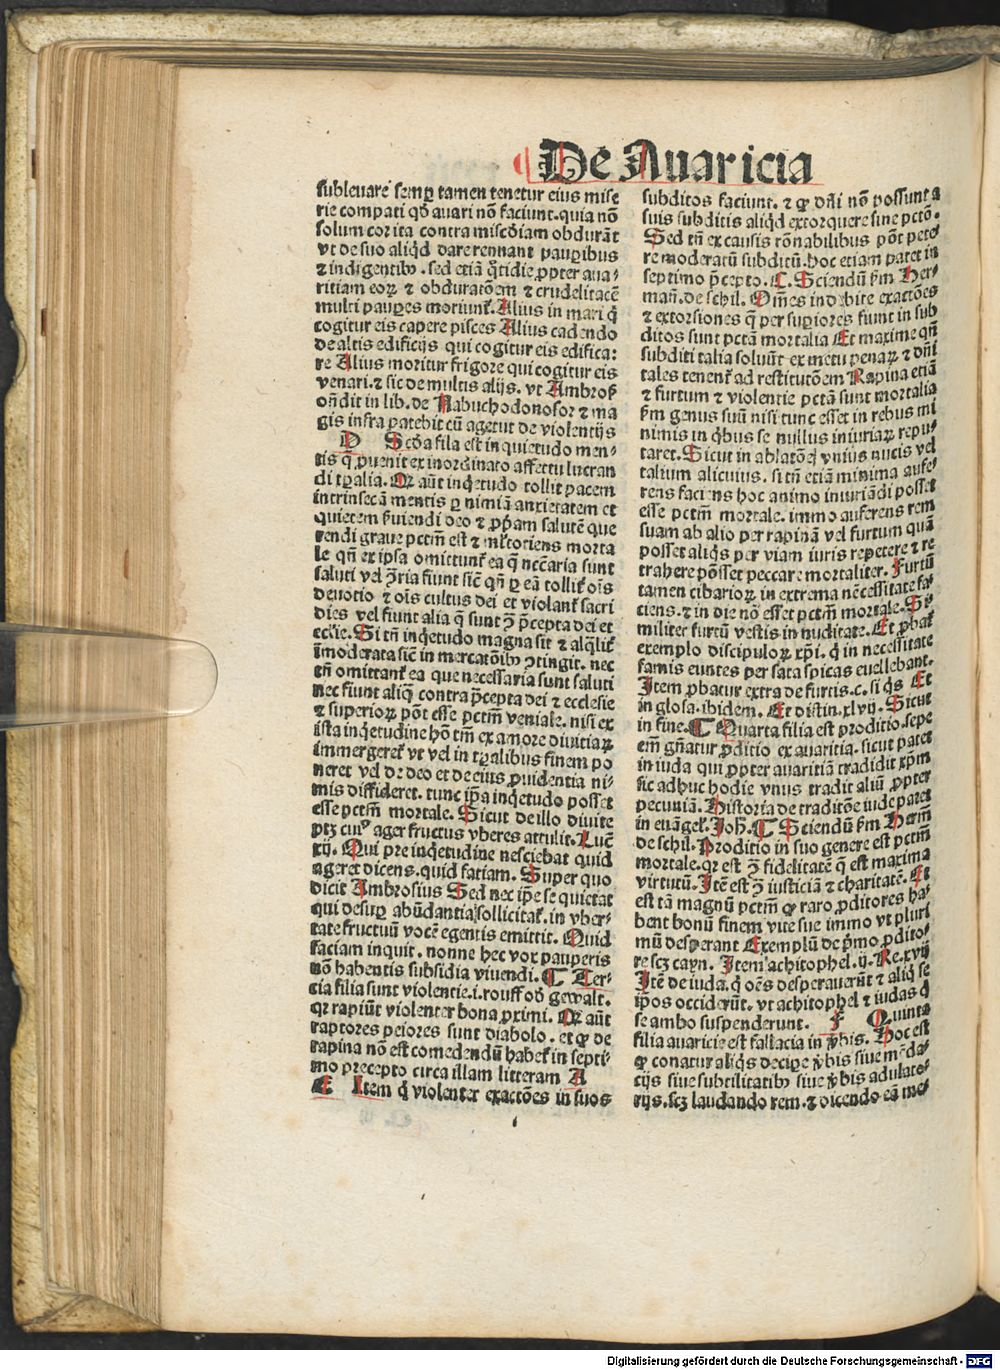 De Auaricia
subleuare semꝑ tamen tenetur eius mise
rie compati qđ auari nō faciunt. quia nō
solum cor ita contra miscđiam obdurāt
vt de suo aliqđ dare rennant pauꝑibus
⁊ indigentibꝰ. sed etiā q̄tidie ꝓpter aua⸗
ritiam eoꝝ ⁊ obduratōem ⁊ crudelitatē
multi pauꝑes moriunt᷑. Alius in mari q̄
cogitur eis capere pisces Alius cadendo
de altis edificijs qui cogitur eis edifica:
re Alius moritur frigore qui cogitur eis
venari. ⁊ sic de multis alijs. vt Ambros̄
on̄dit in lib. de Nabuchodonosor ⁊ ma
gis infra patebit cū agetur de violentijs
D Scđa filia est inquietudo men⸗
tis q̄ ꝓuenit ex inordinato affectu lucran
di tꝑalia. Qꝛ aūt inq̄etudo tollit pacem
intrinsecā mentis ꝑ nimiā anxietatem et
quietem s̄uiendi deo ⁊ ꝓpam salutē que
rendi graue pctm̄ est ⁊ mltociens morta
le qn̄ ex ipsa omittunt᷑ ea q̄ necc̄aria sunt
saluti vel ꝯ̄ria fiunt sic̄ qn̄ ꝑ eā tollit᷑ oīs
deuotio ⁊ oīs cultus dei et violant᷑ sacri
dies vel fiunt alia q̄ sunt ꝯ̄ p̄cepta dei et
eccl̄ie. Si tn̄ inq̄etudo magna sit ⁊ alq̄lit᷑
īmoderata sic̄ in mercatōibꝰ ꝯtingit. nec
tn̄ omittant᷑ ea que necessaria sunt saluti
nec fiunt aliq̄ contra p̄cepta dei ⁊ ecclesie
⁊ superioꝝ pōt esse pctm̄ veniale. nisi ex
ista inq̄etudine hō tm̄ ex amore diuitiaꝝ
immergeret᷑ vt vel in tꝑalibus finem po
neret vel de deo et de eius ꝓuidentia ni⸗
mis diffideret. tunc ip̄a inq̄etudo posset
esse pctm̄ mortale. Sicut de illo diuite
ptꝫ cuiꝰ ager fructus vberes attulit. Luc̄
xij. Qui pre inq̄etudine nesciebat quid
ageret dicens. quid fatiam. Super quo
dicit Ambrosius Sed nec ip̄e se quietat
qui desuꝑ abūdantia sollicitat᷑. in vber⸗
tate fructuū vocē egentis emittit. Quid
faciam inquit. nonne hec vox pauperis
nō habentis subsidia viuendi. ¶ Ter⸗
cia filia sunt violentie. i. rouff ođ gewalt.
qꝛ rapiūt violenter bona ꝓximi. Qꝛ aūt
raptores peiores sunt diabolo. et ꝙ de
rapina nō est comedendū habet᷑ in septi⸗
mo precepto circa illam litteram A
E Item q̄ violenter exactōes in suos
subditos faciunt. ⁊ ꝙ dn̄i nō possunt a
suis subditis aliqđ extorquere sine pctō.
Sed tn̄ ex causis rōnabilibus pōt pete⸗
re moderatū subditū. hoc etiam patet in
septimo p̄cepto. ¶. Sciendū ẜm Her⸗
man̄. de schil. Om̄es indebite exactōes
⁊ extorsiones q̄ per suꝑiores fiunt in sub
ditos sunt pctā mortalia Et maxime qn̄
subditi talia soluūt ex metu penaꝝ ⁊ dn̄i
tales tenent᷑ ad restitutōem Rapina etiā
⁊ furtum ⁊ violentie pctā sunt mortalia
ẜm genus suū nisi tunc esset in rebus mi
nimis in q̄bus se nullus iniuriaꝝ repu⸗
taret. Sicut in ablatōe vnius nucis vel
talium alicuius. si tn̄ etiā minima aufe⸗
rens faciens hoc animo iniuriādi posset
esse pctm̄ mortale. immo auferens rem
suam ab alio per rapinā vel furtum quā
posset aliq̄s per viam iuris repetere ⁊ re
trahere pōsset peccare mortaliter. Furtū
tamen cibarioꝝ in extrema necessitate fa⸗
ciens. ⁊ in die nō esset pctm̄ mortale. Si⸗
militer furtū vestis in nuditate. Et ꝓbat᷑
exemplo discipuloꝝ xp̄i. q̄ in necessitate
famis euntes per sata spicas euellebant.
Item ꝓbatur extra de furtis. c. si q̄s Et
in glosa. ibidem. Et distin. xl vij. Sicut
in fine. ¶ Quarta filia est proditio. sepe
em̄ gn̄atur ꝓditio ex auaritia. sicut patet
in iuda qui ꝓpter auaritiā tradidit xp̄m
sic adhuc hodie vnus tradit aliū ꝓpter
pecuniā. Historia de traditōe iude patet
in euāgel᷑. Joh̄. ¶ Sciendū ẜm Herm̄
de schil. Proditio in suo genere est pctm̄
mortale. qꝛ est ꝯ̄ fidelitatē q̄ est maxima
virtutū. Itē est ꝯ̄ iusticiā ⁊ charitatē. Et
est tā magnū pctm̄ ꝙ raro ꝓditores ha⸗
bent bonū finem vite sue immo vt pluri
mū desperant Exemplū de p̄mo ꝓdito⸗
re scꝫ cayn. Item achitophel. ij. Re. xvij
Itē de iuda. q̄ oēs desperauerūt ⁊ aliq̄ se
ip̄os occiderūt. vt achitophel ⁊ iudas q̄
se ambo suspenderunt. F Quinta
filia auaricie est fallacia in v̄bis. Hoc est
ꝙ conatur aliq̄s decipe v̄bis siue mēda⸗
cijs siue subtilitatibꝰ siue v̄bis adulato⸗
rijs. scꝫ laudando rem. ⁊ dicendo eā me⸗
Digitalisierung gefördert durch die Deutsche Forschungsgemeinschaft - DFG